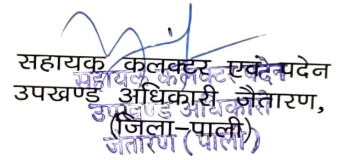 सहायक कलक्टर एवं पदेन
उपखण्ड अधिकारी जैतारण,
(जिला-पाली)
सहायक कलक्टर एवं पदेन
उपखण्ड अधिकारी
जैतारण (पाली)